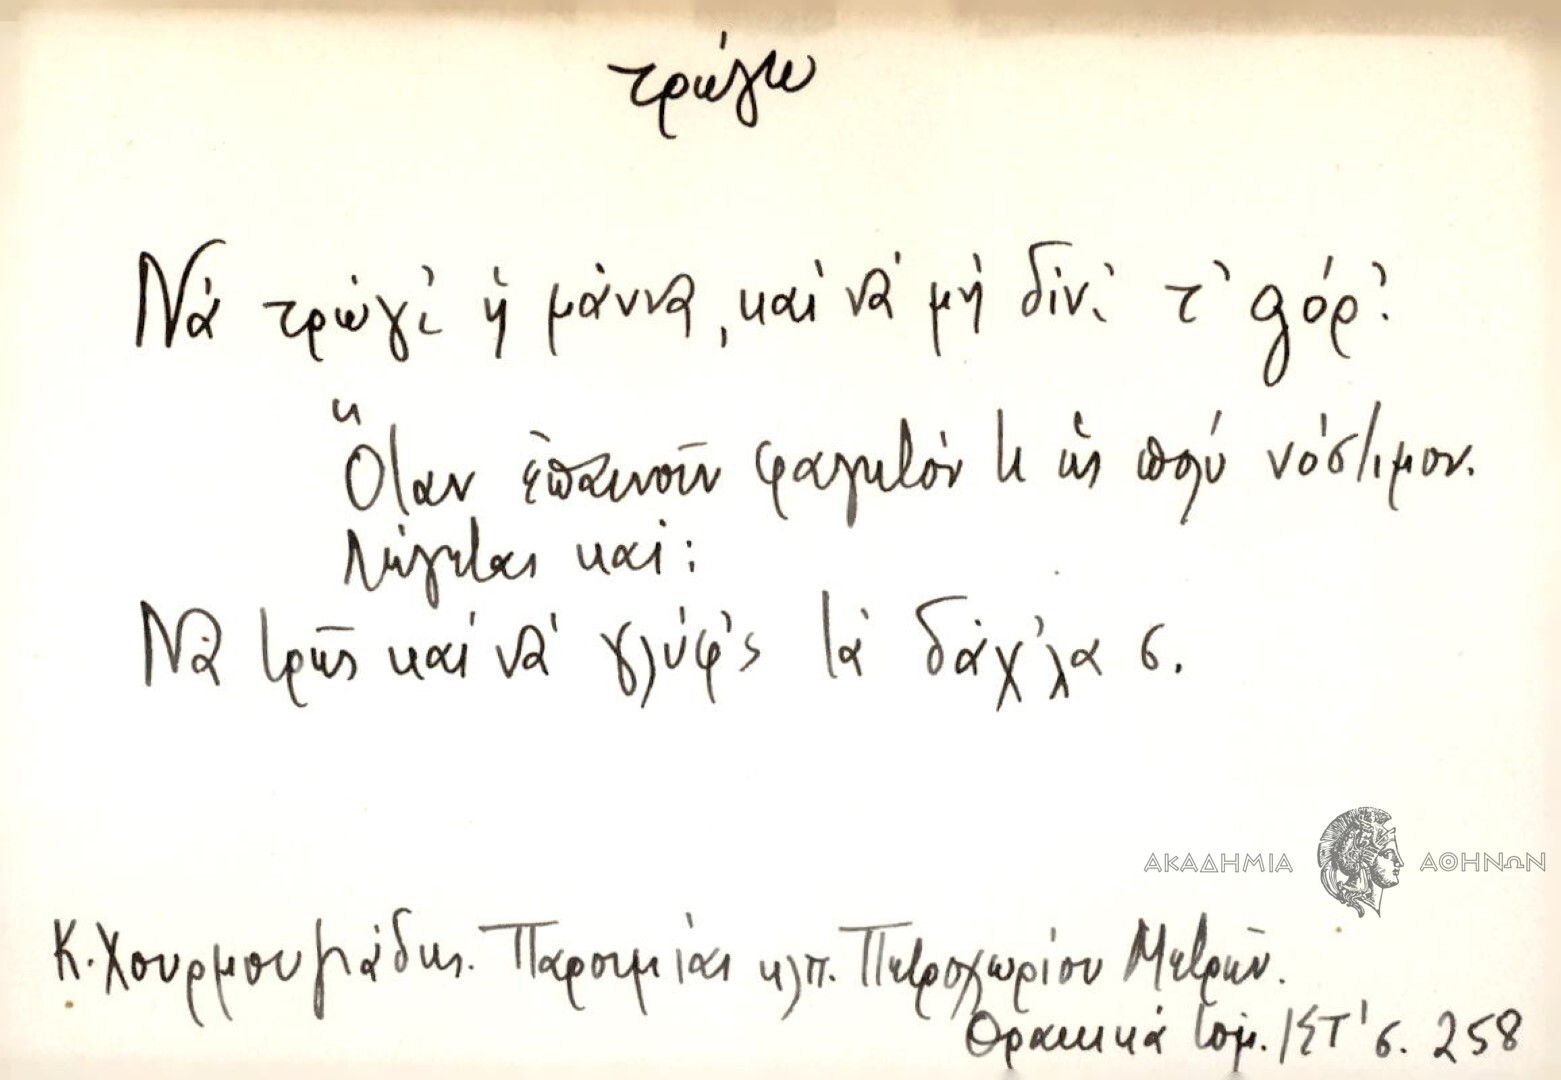 τρώγω
Νά τρώγ̓ ἡ μάννα, καί νά μή δίν̓ τ̓ φόῤ.
Ὅταν ἐπαινοῦν φαγητόν ὡς πολύ νόστιμον.
Λέγεται καί:
Νά τρῶς καί νά γλύφ̓ς τά δάχ̓λα σ.
ΑΚΑΔΗΜΙΑ ΑΘΗΝΩΝ
Κ. Χουρμουζιάδης. Παροιμίαι κλπ. Πετροχωρίου Μετρῶν.
Θρακικά τόμ. ΙΣΤ' σ. 258